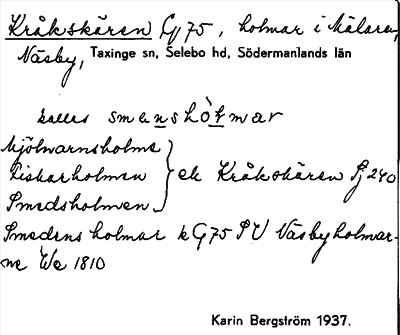 Kråkskären Gj 75, holmar i Mälaren,
Näsby, Taxinge sn, Selebo hd, Södermanlands län
kallas smenshòlmar
Mjölnarnsholme
Fiskarholmen } ek Kråkskären Fj 240
Smedsholmen
Smedens holmar k G 75 SV Näsbyholmar-
ne We 1810
Karin Bergström 1937.